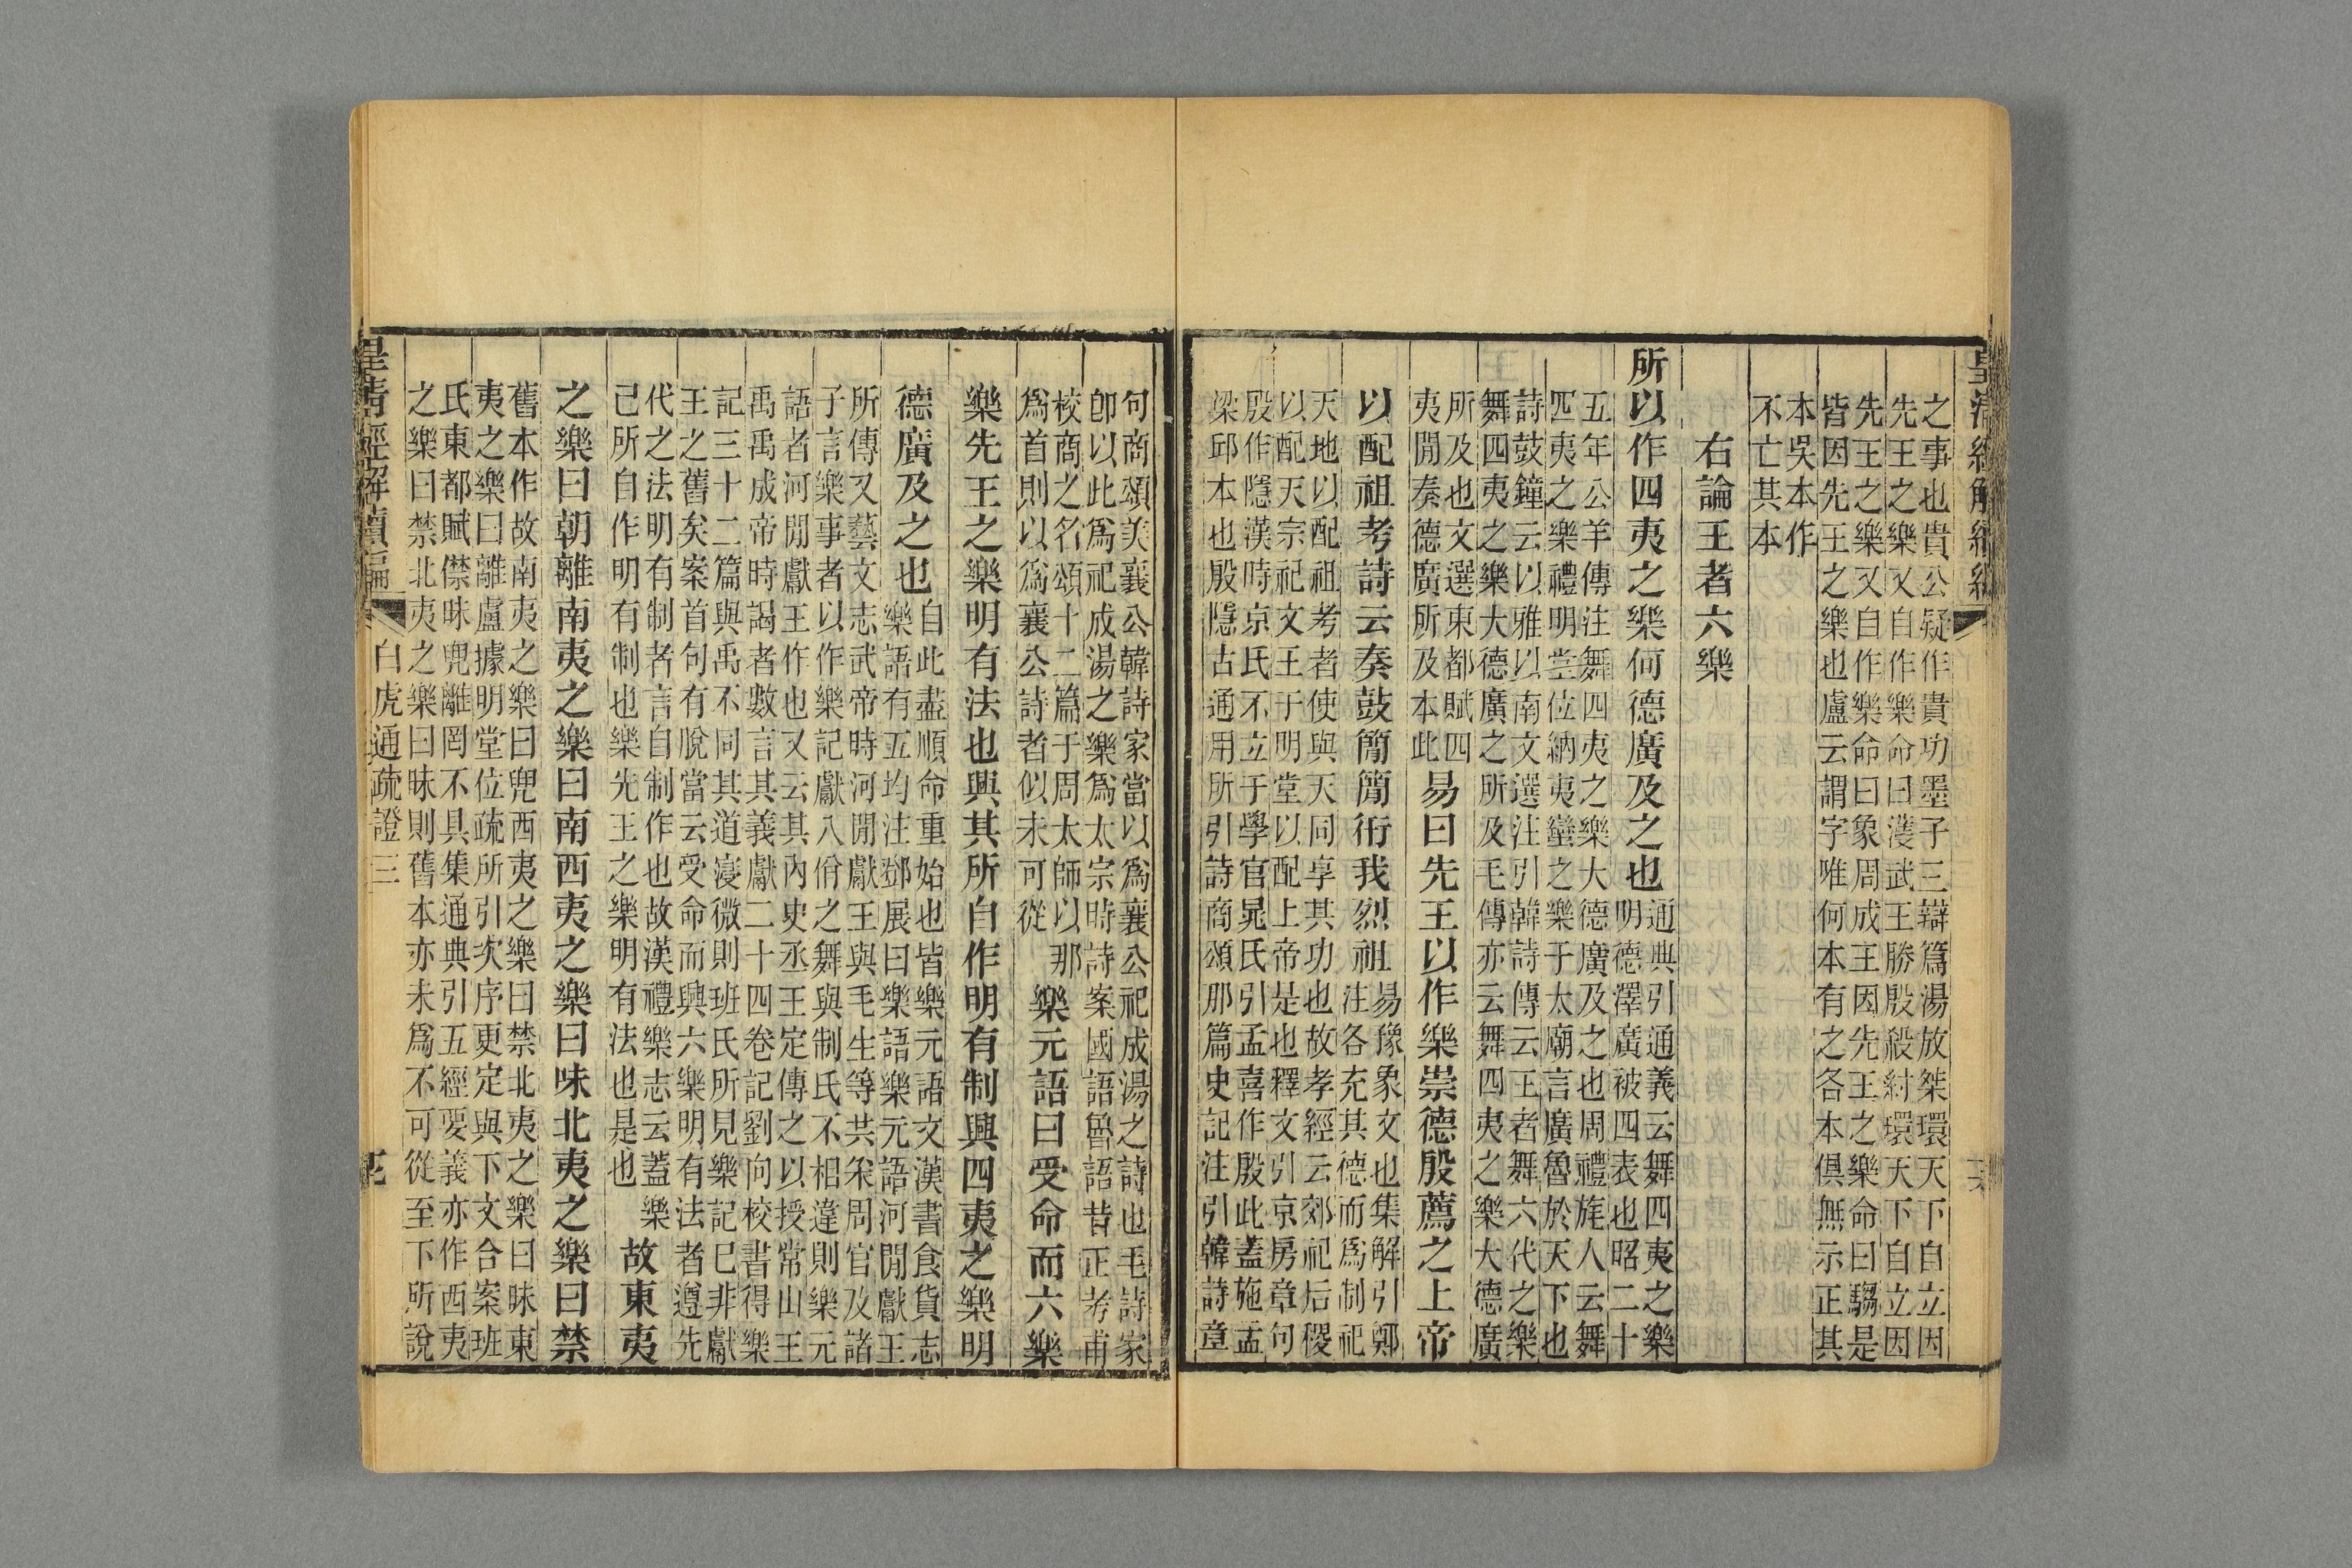 皇清經解續編
之事也貴公疑作貴功墨子三辯篇湯放桀環天下自立因
先王之樂又自作樂命曰濩武王勝殷殺紂環天下自立因
先王之樂又自作樂命曰象周成王因先王之樂命曰騶是
皆因先王之樂也盧云謂字唯何本有之各本俱無示正其
本吳本作
不亡其本
右論王者六樂
所以作四夷之樂何德廣及之也
通典引通義云舞四夷之樂
明德澤廣被四表也昭二十
五年公羊傳注舞四夷之樂大德廣及之也周禮旄人云舞
匹夷之樂禮明堂位納夷蠻之樂于太廟言廣魯於天下也
詩鼓鐘云以雅以南文選注引韓詩傳云王者舞六代之樂
舞四夷之樂大德廣之所及毛傳亦云舞四夷之樂大德廣
所及也文選東都賦四
夷閒奏德廣所及本此
易曰先王以作樂崇德殷薦之上帝
以配祖考詩云奏鼓簡簡衎我烈祖
易豫象文也集解引鄭
注各充其德而爲制祀
天地以配祖考者使與天同享其功也故孝經云郊祀后稷
以配天宗祀文王于明堂以配上帝是也釋文引京房章句
殷作隱漢時京氏不立于學官晁氏引孟喜作殷此蓋施孟
梁邱本也殷隱古通用所引詩商頌那篇史記注引韓詩章
句商頌美襄公韓詩家當以爲襄公祀成湯之詩也毛詩家
卽以此爲祀成湯之樂爲太宗時詩案國語魯語昔正考甫
校商之名頌十二篇于周太師以那
爲首則以爲襄公詩者似未可從
樂元語曰受命而六樂
樂先王之樂明有法也興其所自作明有制興四夷之樂明
德廣及之也
自此盡順命重始也皆樂元語文漢書食貨志
樂語有五均注鄧展曰樂語樂元語河閒獻王
所傳又藝文志武帝時河閒獻王與毛生等共采周官及諸
子言樂事者以作樂記獻八佾之舞與制氏不相違則樂元
語者河閒獻王作也又云其內史丞王定傳之以授常山王
禹禹成帝時謁者數言其義獻二十四卷記劉向校書得樂
記三十二篇與禹不同其道寖微則班氏所見樂記已非獻
王之舊矣案首句有脫當云受命而興六樂明有法者遵先
代之法明有制者言自制作也故漢禮樂志云蓋樂
己所自作明有制也樂先王之樂明有法也是也
故東夷
之樂曰朝離南夷之樂曰南西夷之樂曰味北夷之樂曰禁
舊本作故南夷之樂曰兜西夷之樂曰禁北夷之樂曰昧東
夷之樂曰離盧據明堂位疏所引次序更定與下文合案班
氏東都賦僸昧兜離罔不具集通典引五經要義亦作西夷
之樂曰禁北夷之樂曰昧則舊本亦未爲不可從至下所說
皇清經解續編 白虎通疏證三